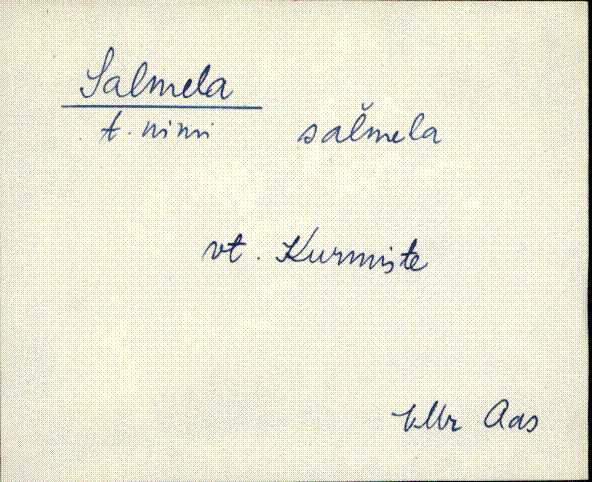 Salmela
t. nimi saľmela
vt. Kurmiste
Aas